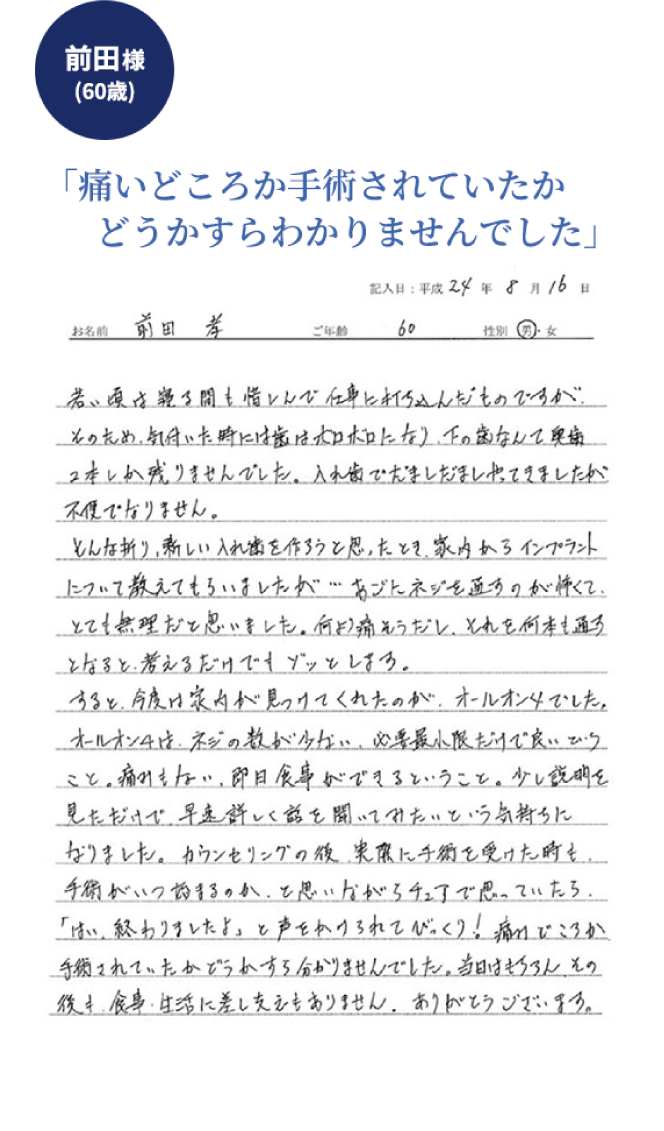 前田様
(60歳)
「痛いどころか手術されていたか
どうかすらわかりませんでした」
記入日：平成 24 年 8 月 16 日
お名前 前田 孝 ご年齢 60 性別 男・女
若い頃は寝る間も惜しんで仕事に打ち込んだものですが、
そのため、気付いた時には歯はボロボロになり、下の歯なんて奥歯
2本しか残りませんでした。入れ歯でだましだましやってきましたが
不便でなりません。
そんな折り、新しい入れ歯を作ろうと思ったとき、家内からインプラント
について教えてもらいましたが…あごにネジを通すのが怖くて、
とても無理だと思いました。何より痛そうだし、それを何本も通す
となると、考えるだけでもゾッとします。
すると、今度は家内が見つけてくれたのが、オールオン4でした。
オールオン4は、ネジの数が少ない、必要最小限だけで良いという
こと。痛みもない、即日食事ができるということ。少し説明を
見ただけで、早速詳しく話を聞いてみたいという気持ちに
なりました。カウンセリングの後、実際に手術を受けた時も、
手術がいつ始まるのか、と思いながらチェアで思っていたら、
「はい、終わりましたよ」と声をかけられてびっくり！痛みどころか
手術されていたかどうかすら分かりませんでした。当日はもちろん、その
後も、食事・生活に差し支えもありません。ありがとうございます。